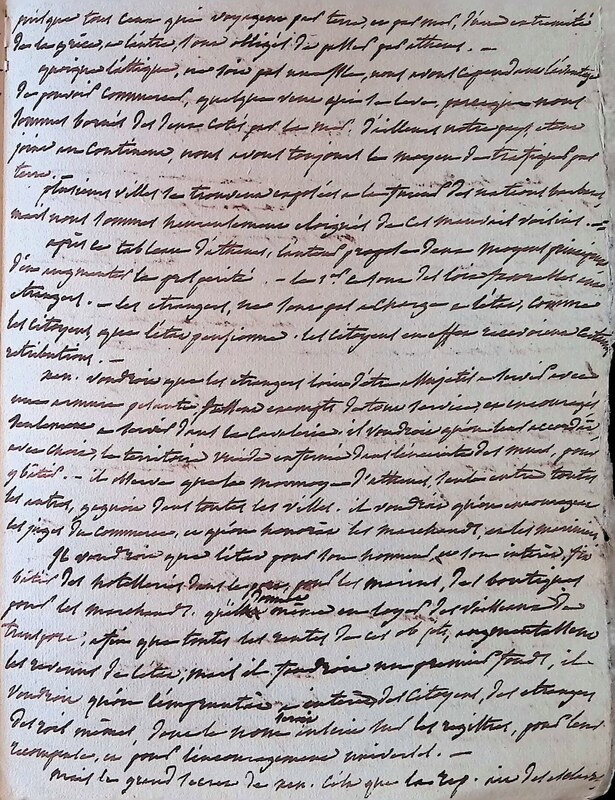 puisque tous ceux qui voyagent par terre, ou par mer, d'une extremité
de la grèce, a l'autre, sont obligés de passer par athenes. —
quoique l'attique, ne soit pas une isle, nous avons cependant l'avantage
de pouvoir commercer, quelque vent qui se leve, puisque nous
sommes bornés des deux cotés par la mer, d'ailleurs notre pays etant
joint au continent, nous avons toujours le moyen de trafiquer par
terre.
plusieurs villes se trouvent exposées a la fureur des nations barbares
mais nous sommes heureusement eloignés de ces mauvais voisins. —
après ce tableau d'athenes, l'auteur propose deux moyens principaux
d'en augmenter la prosperité. — le 1er. ce sont des loix favorables aux
etrangers. — les etrangers, ne sont pas a charge a l'etat, comme
les citoyens, que l'etat pensionne. les citoyens en effet recevoient certaines
retributions. —
xen. voudroit que les etrangers loin d'etre assujetis a servir avec
une armure pesante, fussent exempts de tout service, et encouragés
seulement a servir dans la cavalerie. il voudroit qu'on leur accordât
avec choix, le terrain vuide enfermé dans l'enceinte des murs, pour
y bâtir. — il observe que la monnoye d'athenes, seule entre toutes
les autres, gagnoit dans toutes les villes. il voudroit qu'on encourageat
les juges du commerce, et qu'on honorât les marchands, et les marins.
Il voudroit que l'etat pour son honneur, et son interêt, fit
bâtir des hotelleries dans le port, pour les marins, des boutiques
pour les marchands. qu'il même en loyer des vaisseaux de
transport; afin que toutes les rentes de ces objets, augmentassent
les revenus de l'etat, mais il faudroit un premier fonds, il
voudroit qu'on l'empruntât a interêt des citoyens, des etrangers
des rois mêmes, dont le nom seroit inscrit sur les registres, pour leur
recompense, et pour l'encouragement universel. —
mais le grand secret de xen. c'est que la rep. ait des esclaves